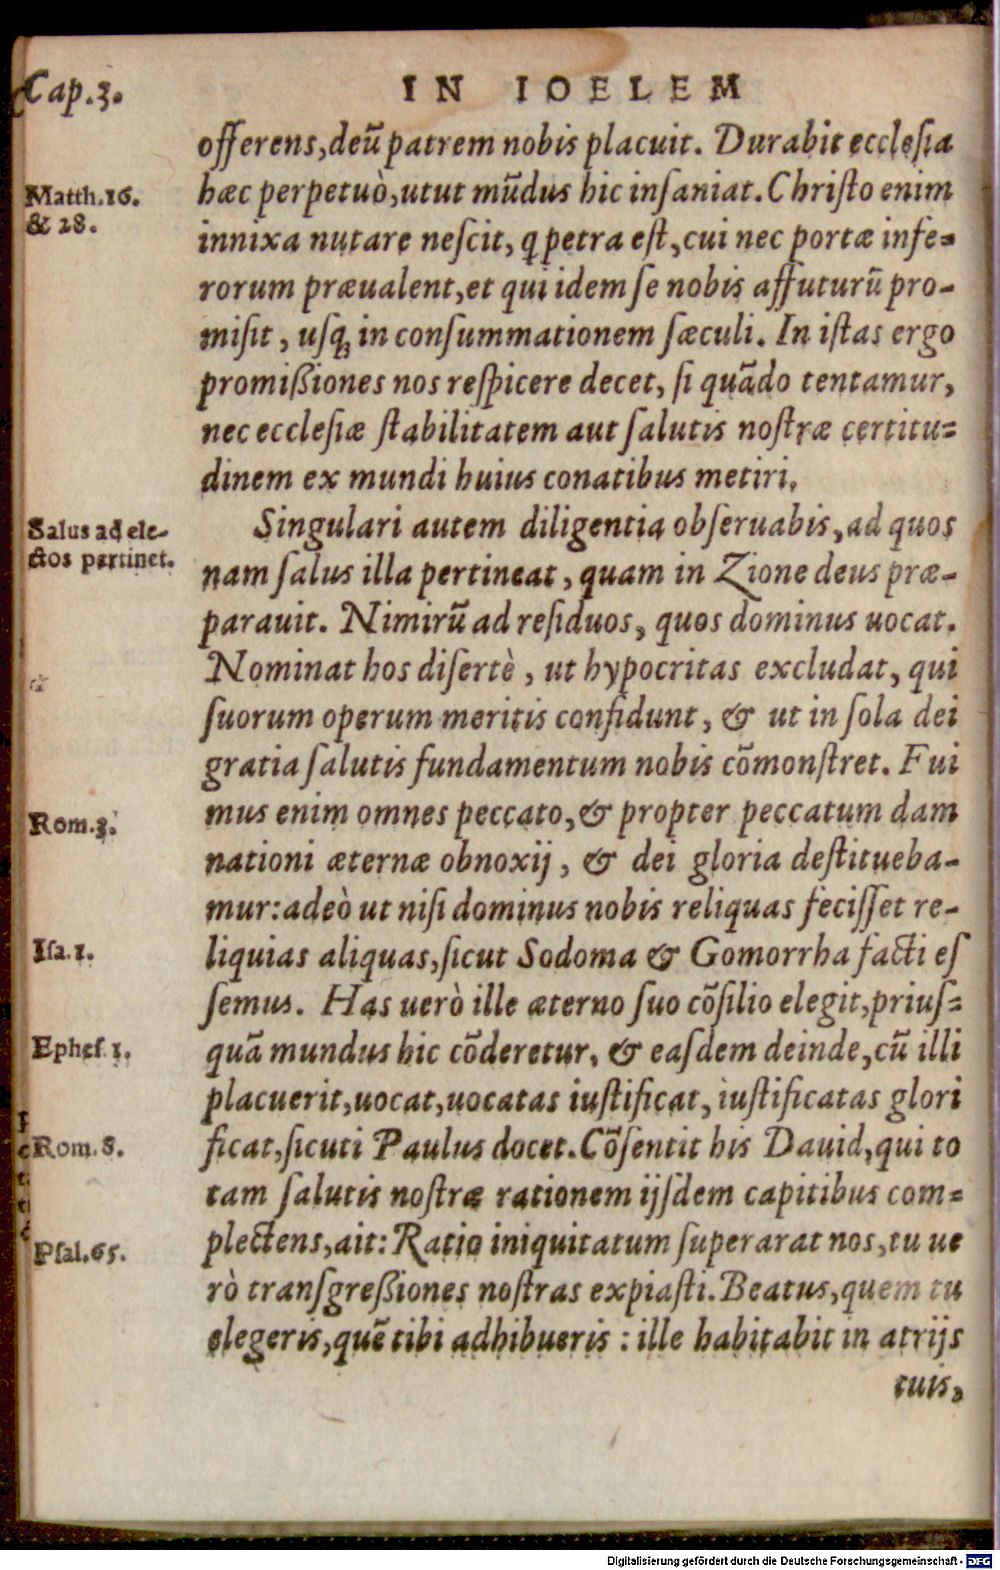 Cap.3.
IN IOELEM
offerens,deũ patrem nobis placuit. Durabit ecclesia
Matth.16.
& 28.
hæc perpetuò,utut mũdus hic insaniat. Christo enim
innixa nutare nescit, ꝗ petra est,cui nec portæ infe-
rorum præualent,et qui idem se nobis affuturũ pro-
misit, usq; in consummationem sæculi. In istas ergo
promißiones nos respicere decet, si quãdo tentamur,
nec ecclesiæ stabilitatem aut salutis nostræ certitu-
dinem ex mundi huius conatibus metiri.
Salus ad ele-
ctos pertinet.
Singulari autem diligentia obseruabis,ad quos
nam salus illa pertineat, quam in Zione deus præ-
parauit. Nimirũ ad residuos, quos dominus uocat.
Nominat hos disertè, ut hypocritas excludat, qui
suorum operum meritis confidunt, & ut in sola dei
gratia salutis fundamentum nobis cõmonstret. Fui
Rom.3.
mus enim omnes peccato,& propter peccatum dam
nationi æternæ obnoxij, & dei gloria destitueba-
mur:adeò ut nisi dominus nobis reliquas fecisset re-
Isa.1.
liquias aliquas,sicut Sodoma & Gomorrha facti es
semus. Has uerò ille æterno suo cõsilio elegit,prius-
Ephes.1.
quã mundus hic cõderetur, & easdem deinde,cũ illi
placuerit,uocat,uocatas iustificat, iustificatas glori
Rom.8.
ficat,sicuti Paulus docet. Cõsentit his Dauid,qui to
tam salutis nostræ rationem ijsdem capitibus com-
Psal.65.
plectens,ait: Ratio iniquitatum superarat nos,tu ue
rò transgreßiones nostras expiasti. Beatus,quem tu
elegeris,quẽ tibi adhibueris: ille habitabit in atrijs
tuis,
Digitalisierung gefördert durch die Deutsche Forschungsgemeinschaft - DFG